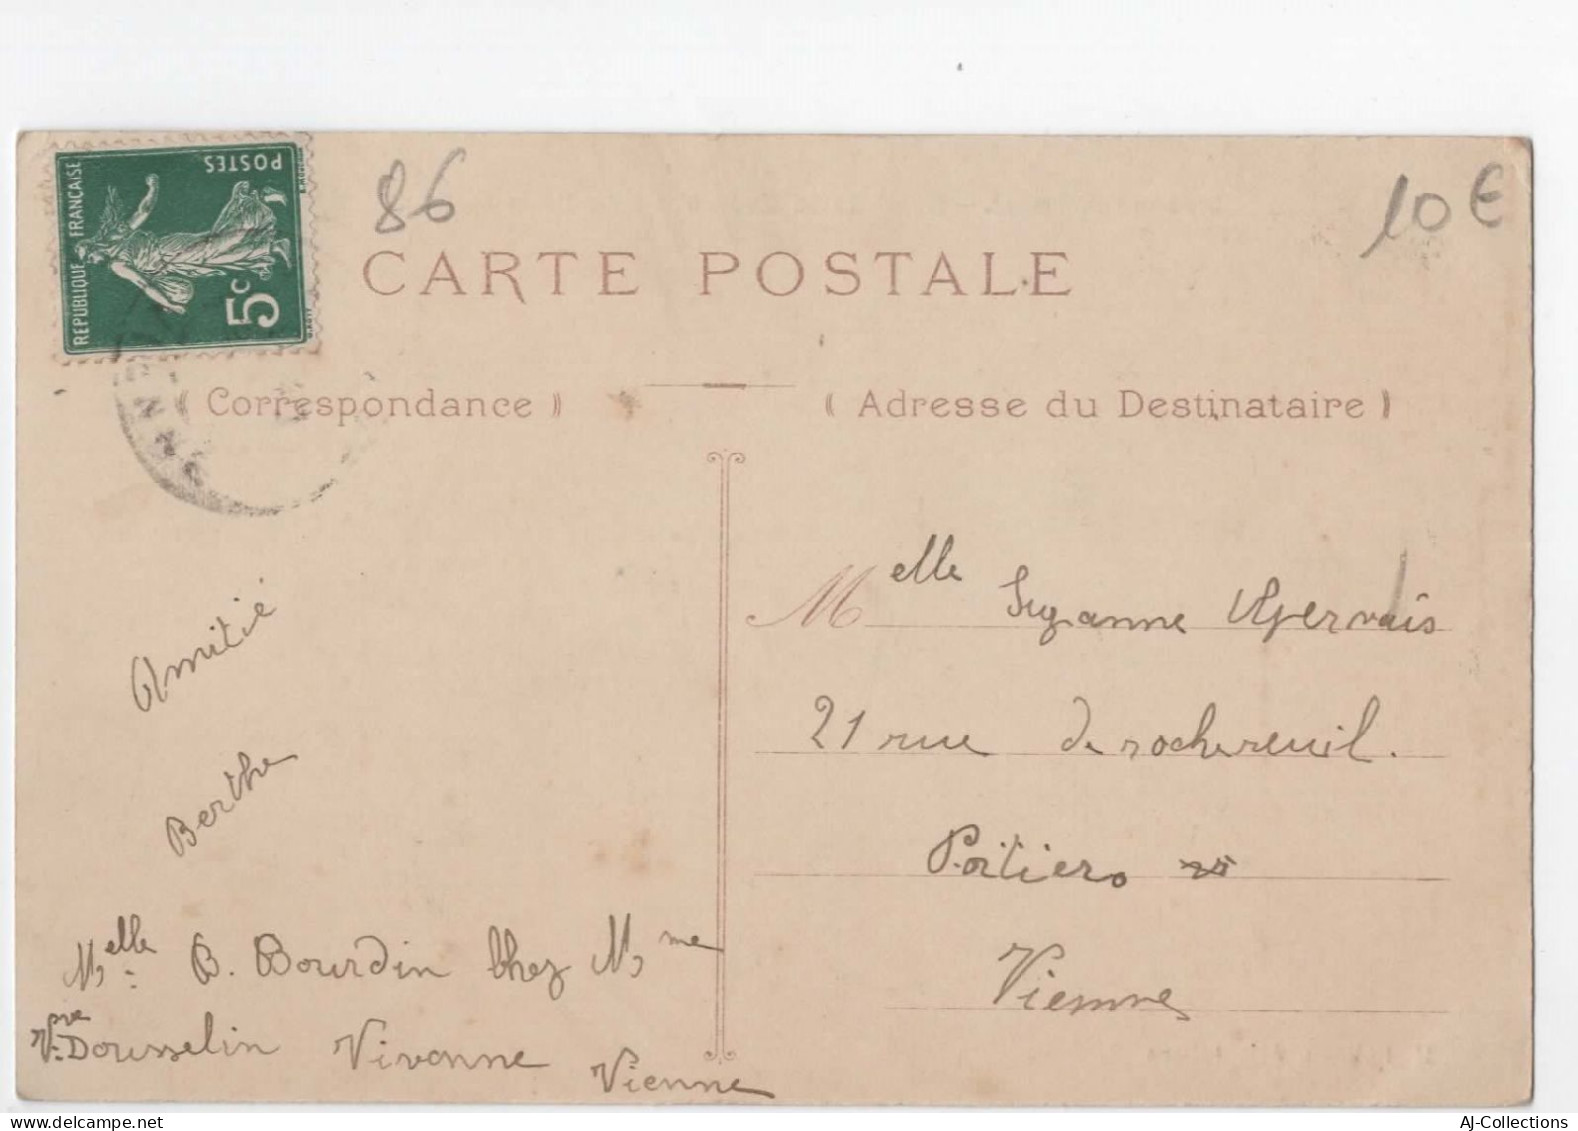 REPUBLIQUE FRANÇAISE
POSTES
5c
86
10 €
CARTE POSTALE
( Correspondance )
( Adresse du Destinataire )
Amitié
Berthe
Melle B. Bourdin Chez Mme
Vve Dousselin Vivonne Vienne
Melle Suzanne Gervais
21 rue de rochereuil.
Poitiers
Vienne
delcampe.net
AJ-Collections